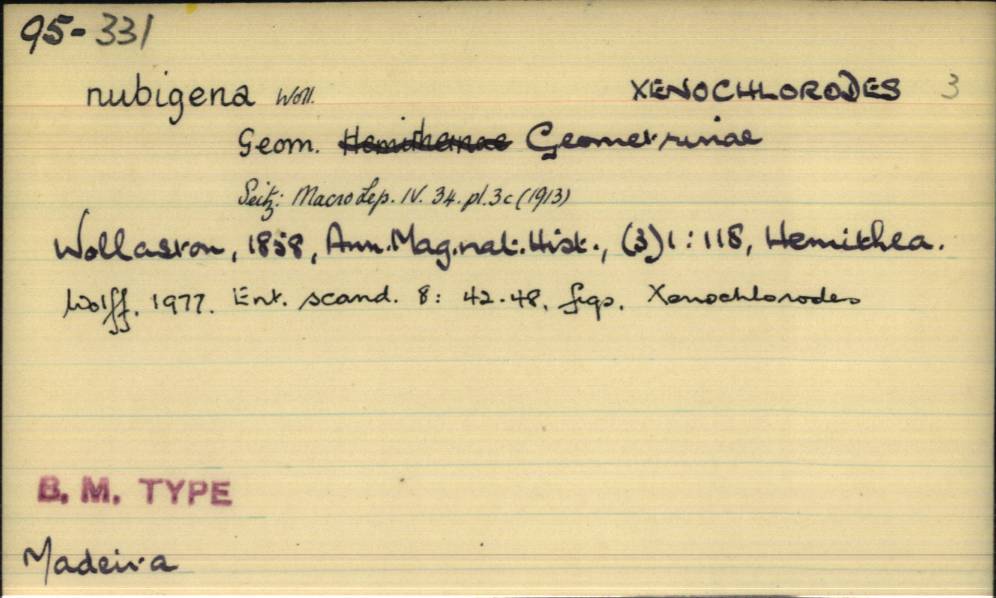 95-331
nubigena Woll. XENOCHLORODES 3
Geom. Hemitheinae Geometrinae
Seitz: MacroLep. IV. 34. pl.3c (1913)
Wollaston, 1858, Ann.Mag.nat.Hist., (3)1:118, Hemithea.
Wolff. 1977. Ent. scand. 8: 42-48, figs. Xenochlorodes
B. M. TYPE
Madeira